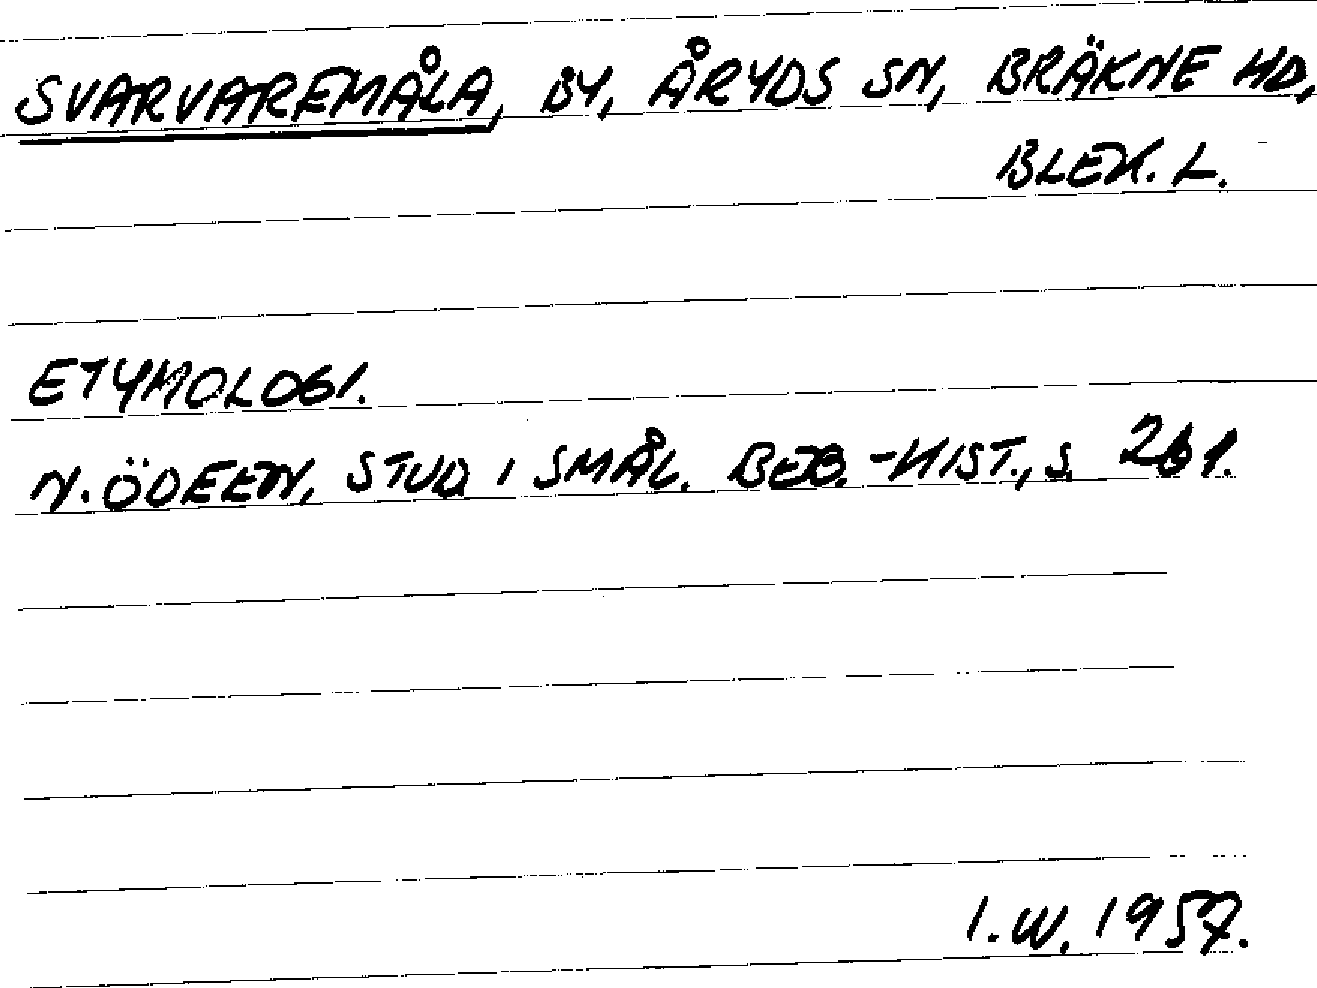 SVARVAREMÅLA, BY, ÅRYDS SN, BRÄKNE HD,
BLEK. L.
ETYMOLOGI.
N. ÖDEEN, STUD. I SMÅL. BEB.-HIST., S. 261.
I.W. 1957.